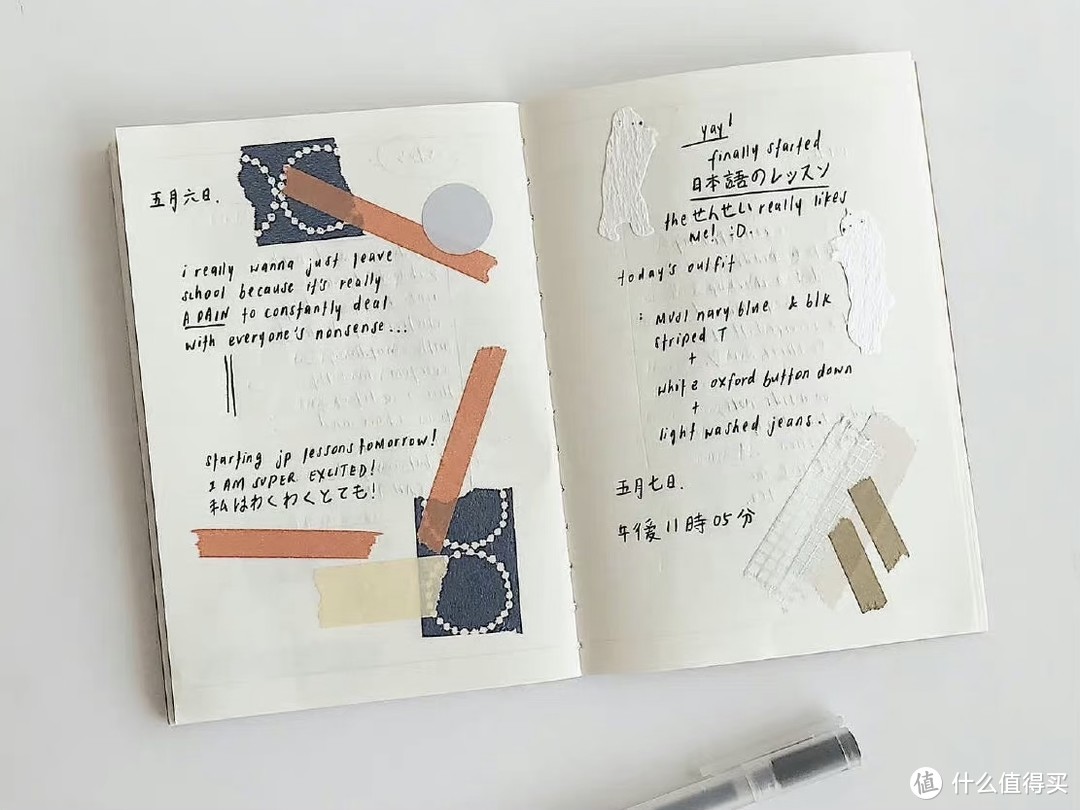 五月六日.
i really wanna just leave
school because it's really
A PAIN to constantly deal
with everyone's nonsense...
starting jp lessons tomorrow!
I AM SUPER EXCITED!
私はわくわくとても!
yay!
finally started
日本語のレッスン
the せんせい really likes
me! :D.
today's outfit
: MUJI navy blue & blk
striped T
+
white oxford button down
+
light washed jeans.
五月七日.
午後 11 時 05 分
值 什么值得买